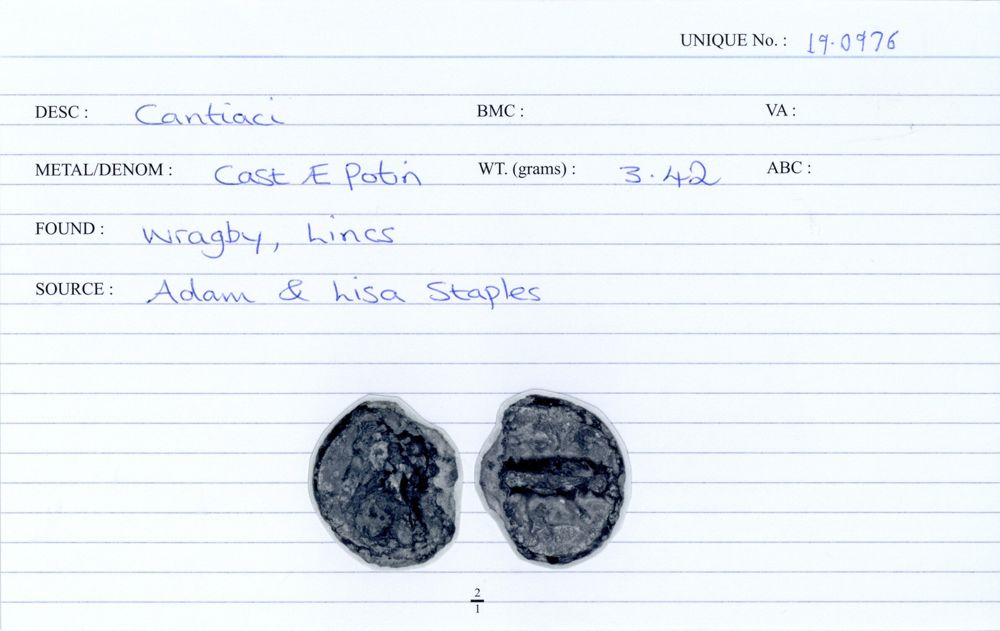 UNIQUE No. : 19.0976
DESC : Cantiaci BMC : VA :
METAL/DENOM : Cast Æ Potin WT. (grams) : 3.42 ABC :
FOUND : Wragby, Lincs
SOURCE : Adam & Lisa Staples
2
1